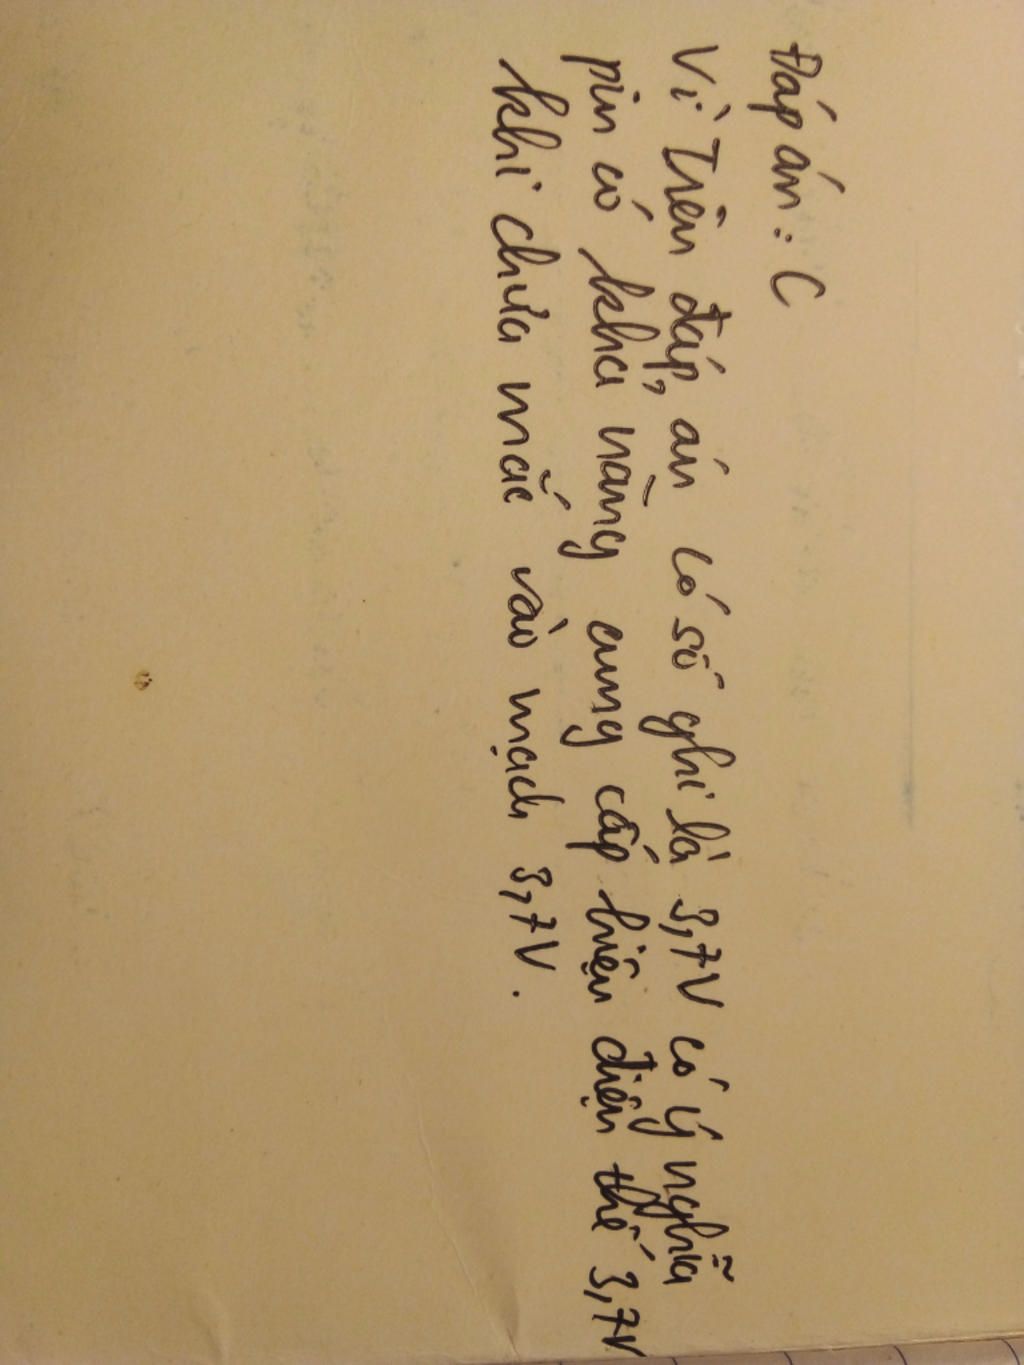 Đáp án: C
Vì Trên đáp, án có số ghi là 3,7V có ý nghĩa
pin có khả năng cung cấp hiện điện thế 3,7V
khi chưa mắc vào mạch 3,7V.